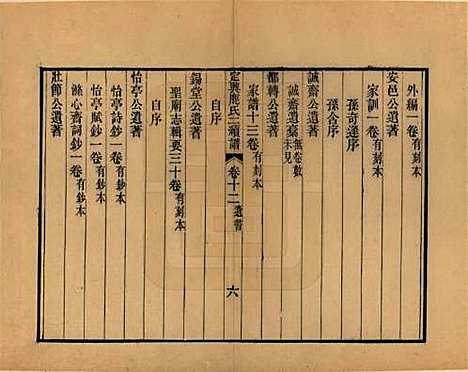 外編一卷有刻本
安邑公遺著
家訓一卷有刻本
孫奇逢序
孫含序
誠齋公遺著
誠齋遺稾無卷數未見
都轉公遺著
家譜十三卷有刻本
定興鹿氏二續譜 卷十二 遺書 六
自序
錫堂公遺著
聖廟志輯要三十卷有刻本
自序
怡亭公遺著
怡亭詩鈔一卷有鈔本
怡亭賦鈔一卷有鈔本
滌心齋詞鈔一卷有鈔本
壯節公遺著